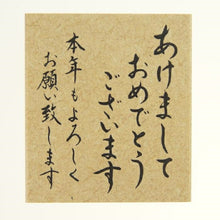 あけまして
おめでとう
ございます
本年もよろしく
お願い致します